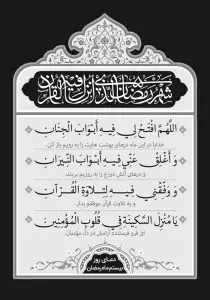 شهر رمضان الذی انزل فیه القرآن
اللَّهُمَّ افْتَحْ لِی فِیهِ أَبْوَابَ الْجِنَانِ
خدایا در این ماه درهای بهشت هایت را به رویم باز کن،
وَ أَغْلِقْ عَنِّی فِیهِ أَبْوَابَ النِّیرَانِ
و درهای آتش دوزخ را به رویم ببند،
وَ وَفِّقْنِی فِیهِ لِتِلاوَةِ الْقُرْآنِ
و به تلاوت قرآن موفقم بدار،
یَا مُنْزِلَ السَّکِینَةِ فِی قُلُوبِ الْمُؤْمِنِینَ
ای فرو فرستنده آرامش در دل مؤمنان
دعـای روز
بیستم ماه رمضان